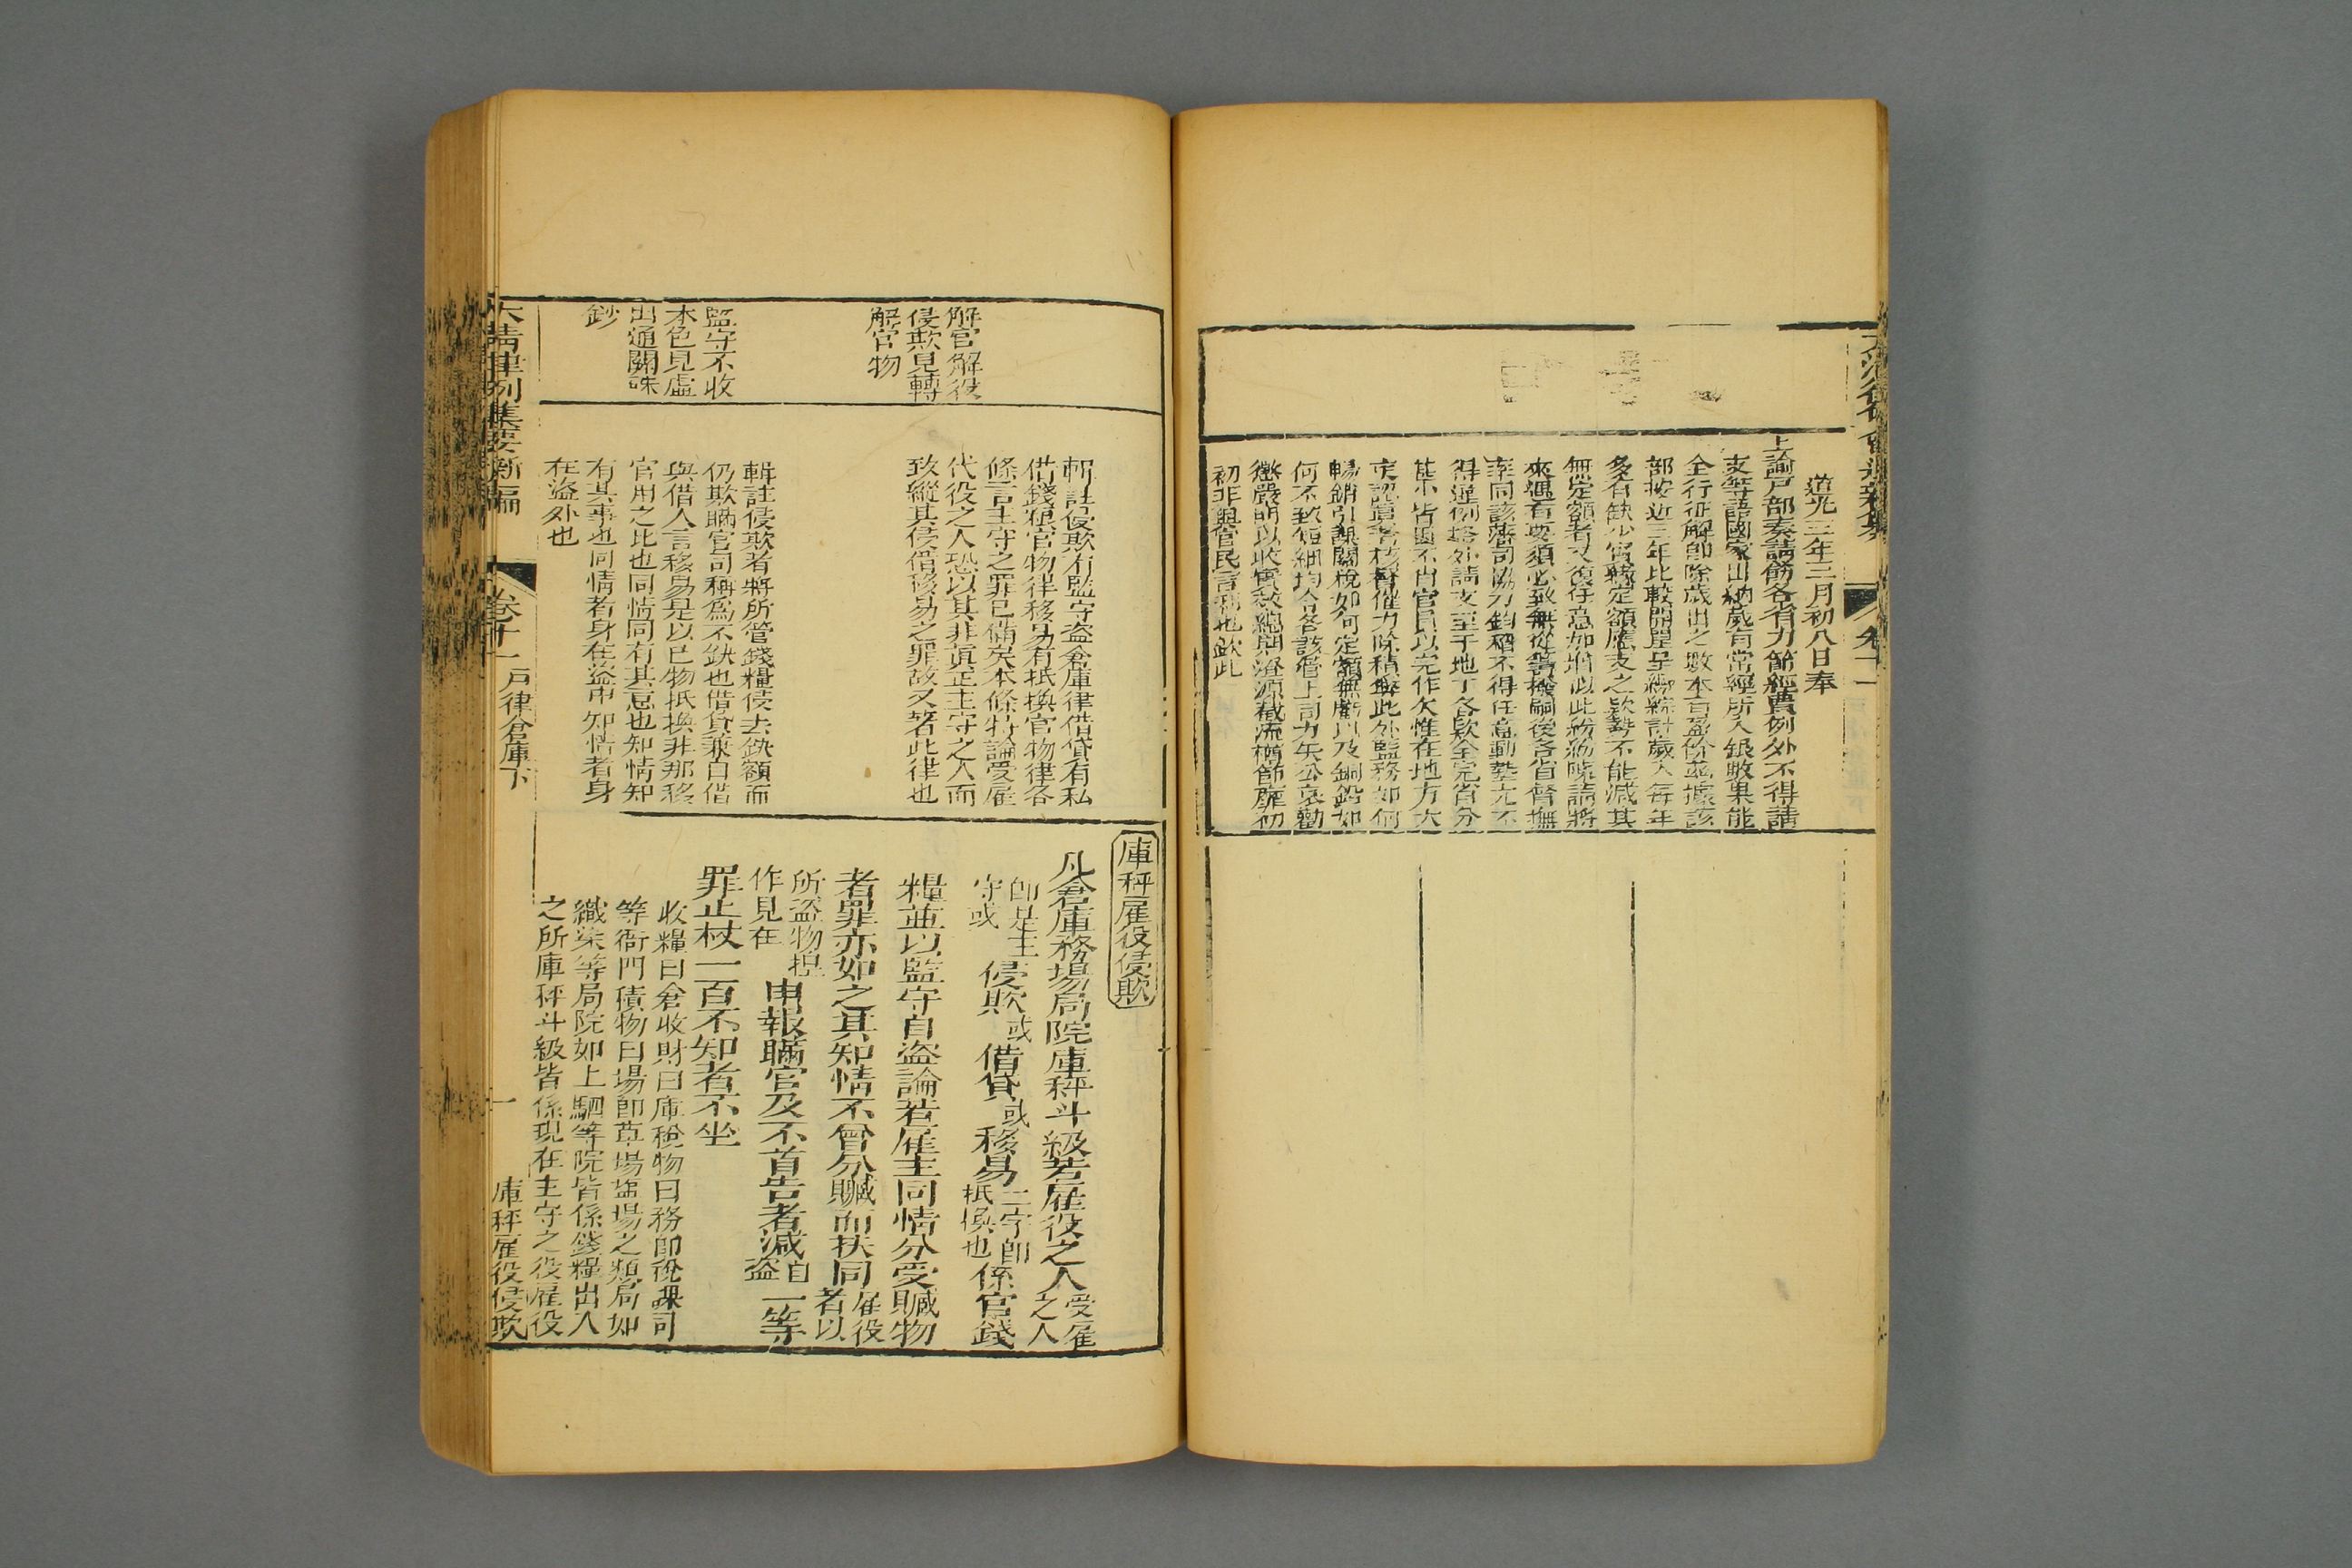 道光三年二月初八日奉
上諭戶部奏請飭各省力節經費例外不得請
支等語國家出納歲有常經所入銀數果能
全行征解即除歲出之數本有盈餘茲據該
部按近三年比較開單呈覽綜計歲入每年
多有缺少實緣定額應支之款勢不能減其
無定額者又復任意加增似此紛紛陳請將
來遇有要須必致無從籌撥嗣後各省督撫
率同該藩司協力鈞稽不得任意動墊尤不
得違例格外請支至于地丁各款全完省分
甚少皆因不肖官員以完作欠惟在地方大
吏認真考核督催力除積弊此外鹽務如何
暢銷引課關稅如何定額無虧以及銅鉛如
何不致短絀均令各該管上司力矢公忠勸
懲嚴明以收實效總期澄源截流樽節靡初
初非與管民言利也欽此
卷十一
解官解役
侵欺見轉
解官物
監守不收
本色見虛
出通關硃
鈔
輯註侵欺有監守盜倉庫律借貸有私
借錢糧官物律移易有抵換官物律各
條言主守之罪已備矣本條特論受雇
代役之人恐以其非真正主守之人而
致縱其侵借移易之罪故又著此律也
輯註侵欺者將所管錢糧侵去缺額而
仍欺瞞官司稱爲不缺也借貸兼自借
與借人言移易是以已物抵換非那移
官用之比也同情同有其意也知情知
有其事也同情者身在盜中知情者身
在盜外也
庫秤雇役侵欺
凡倉庫務場局院庫秤斗級若雇役之人受雇之人
即是主守或侵欺或借貸或移易二字即抵換也係官錢
糧並以監守自盜論若雇主同情分受贓物
者罪亦如之其知情不曾分贓而扶同雇役者以
所盜物捏作見在申報瞞官及不首告者減自盜一等
罪止杖一百不知者不坐
收糧曰倉收財曰庫稅物曰務即稅課司
等衙門積物曰場即草場鹽場之類局如
織染等局院如上駟等院皆係錢糧出入
之所庫秤斗級皆係現在主守之役雇役
大清律例集要新編
卷十一
戶律倉庫下
一
庫秤雇役侵欺